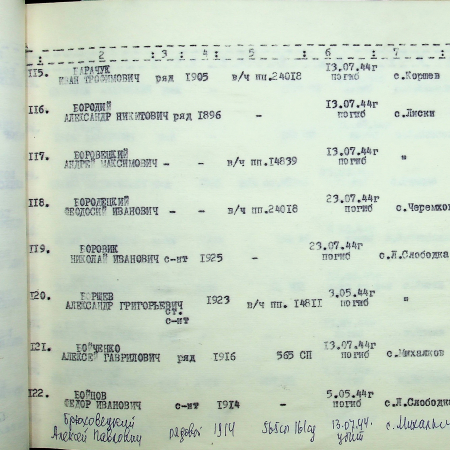 1 : 2 : 3 : 4 : 5 : 6 : 7 :
115. ПАРАЧУК
ИВАН ТРОФИМОВИЧ ряд 1905 в/ч пп.24018 13.07.44г погиб с.Коршев
116. БОРОДИЙ
АЛЕКСАНДР НИКИТОВИЧ ряд 1896 - 13.07.44г погиб с.Лиски
117. БОРОВЕЦКИЙ
АНДРЕЙ МАКСИМОВИЧ - - в/ч пп.14839 13.07.44г погиб "
118. БОРОЛЕЦКИЙ
ФЕОДОСИЙ ИВАНОВИЧ - - в/ч пп.24018 23.07.44г погиб с.Черемхов
119. БОРОВИК
НИКОЛАЙ ИВАНОВИЧ с-нт 1925 - 23.07.44г погиб с.Л.Слободка
120. БОРШЕВ
АЛЕКСАНДР ГРИГОРЬЕВИЧ ст. с-нт 1923 в/ч пп. 14811 3.05.44г погиб "
121. БОЙЧЕНКО
АЛЕКСЕЙ ГАВРИЛОВИЧ ряд 1916 565 СП 13.07.44г погиб с.Михалков
122. БОЙЦОВ
ФЕДОР ИВАНОВИЧ с-нт 1914 - 5.05.44г погиб с.Л.Слободка
Брюховецкий
Алексей Павлович рядовой 1914 565сп 161сд 13.07.44. убит